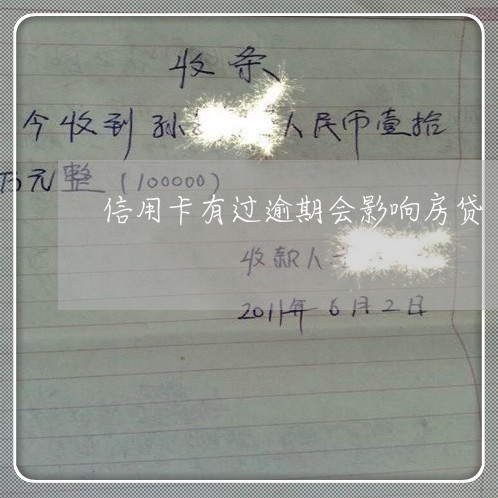 收条
今收到孙 人民币壹拾
万元整（100000）
信用卡有过逾期会影响房贷
收款人
2011年6月2日